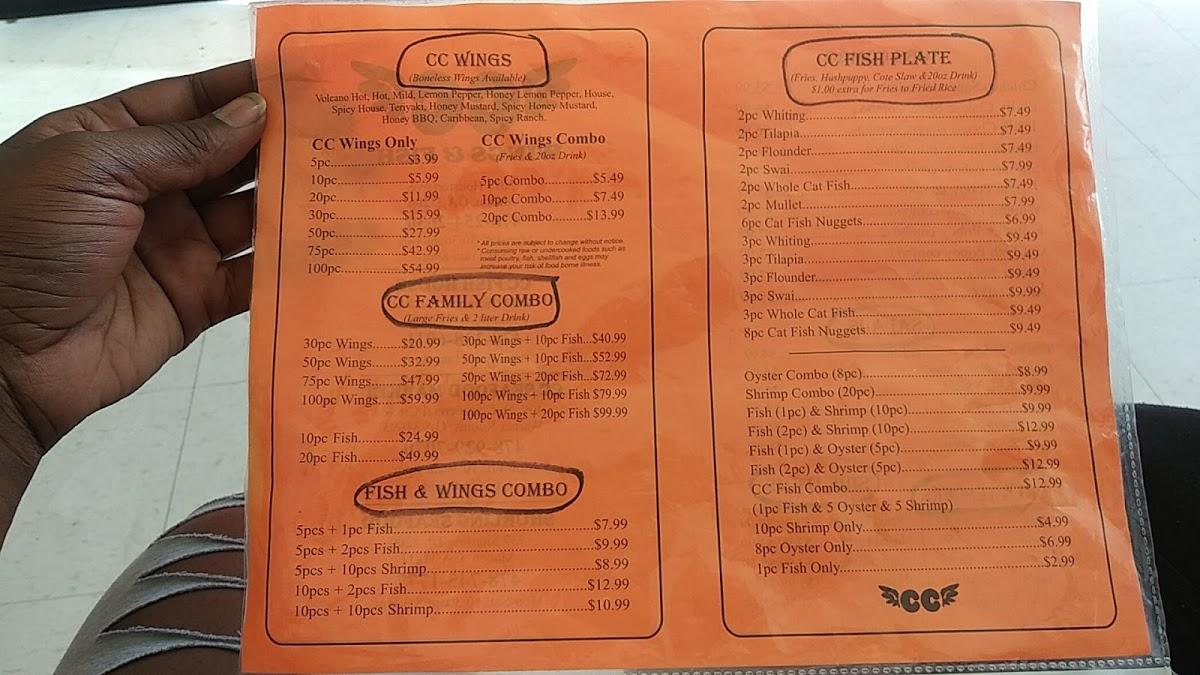 CC WINGS
(Boneless Wings Available)
Volcano Hot, Hot, Mild, Lemon Pepper, Honey Lemon Pepper, House,
Spicy House, Teriyaki, Honey Mustard, Spicy Honey Mustard,
Honey BBQ, Caribbean, Spicy Ranch.
CC Wings Only
5pc....................$3.99
10pc..................$5.99
20pc................$11.99
30pc................$15.99
50pc................$27.99
75pc................$42.99
100pc..............$54.99
CC Wings Combo
(Fries & 20oz Drink)
5pc Combo.............$5.49
10pc Combo...........$7.49
20pc Combo.........$13.99
* All prices are subject to change without notice.
* Consuming raw or undercooked foods such as
meat poultry, fish, shellfish and eggs may
increase your risk of food borne illness.
CC FAMILY COMBO
(Large Fries & 2 liter Drink)
30pc Wings.......$20.99
50pc Wings.......$32.99
75pc Wings.......$47.99
100pc Wings......$59.99
10pc Fish..........$24.99
20pc Fish..........$49.99
30pc Wings + 10pc Fish...$40.99
50pc Wings + 10pc Fish...$52.99
50pc Wings + 20pc Fish...$72.99
100pc Wings + 10pc Fish $79.99
100pc Wings + 20pc Fish $99.99
FISH & WINGS COMBO
5pcs + 1pc Fish..................................................$7.99
5pcs + 2pcs Fish................................................$9.99
5pcs + 10pcs Shrimp..........................................$8.99
10pcs + 2pcs Fish.............................................$12.99
10pcs + 10pcs Shrimp.......................................$10.99
CC FISH PLATE
(Fries, Hushpuppy, Cote Slaw & 20oz Drink)
$1.00 extra for Fries to Fried Rice
2pc Whiting.................................................$7.49
2pc Tilapia..................................................$7.49
2pc Flounder...............................................$7.49
2pc Swai......................................................$7.99
2pc Whole Cat Fish.....................................$7.49
2pc Mullet...................................................$7.99
6pc Cat Fish Nuggets...................................$6.99
3pc Whiting.................................................$9.49
3pc Tilapia..................................................$9.49
3pc Flounder...............................................$9.49
3pc Swai......................................................$9.99
3pc Whole Cat Fish.....................................$9.49
8pc Cat Fish Nuggets...................................$9.49
Oyster Combo (8pc).....................................$8.99
Shrimp Combo (20pc)..................................$9.99
Fish (1pc) & Shrimp (10pc)..........................$9.99
Fish (2pc) & Shrimp (10pc)........................$12.99
Fish (1pc) & Oyster (5pc).............................$9.99
Fish (2pc) & Oyster (5pc)...........................$12.99
CC Fish Combo..........................................$12.99
(1pc Fish & 5 Oyster & 5 Shrimp)
10pc Shrimp Only........................................$4.99
8pc Oyster Only...........................................$6.99
1pc Fish Only...............................................$2.99
CC